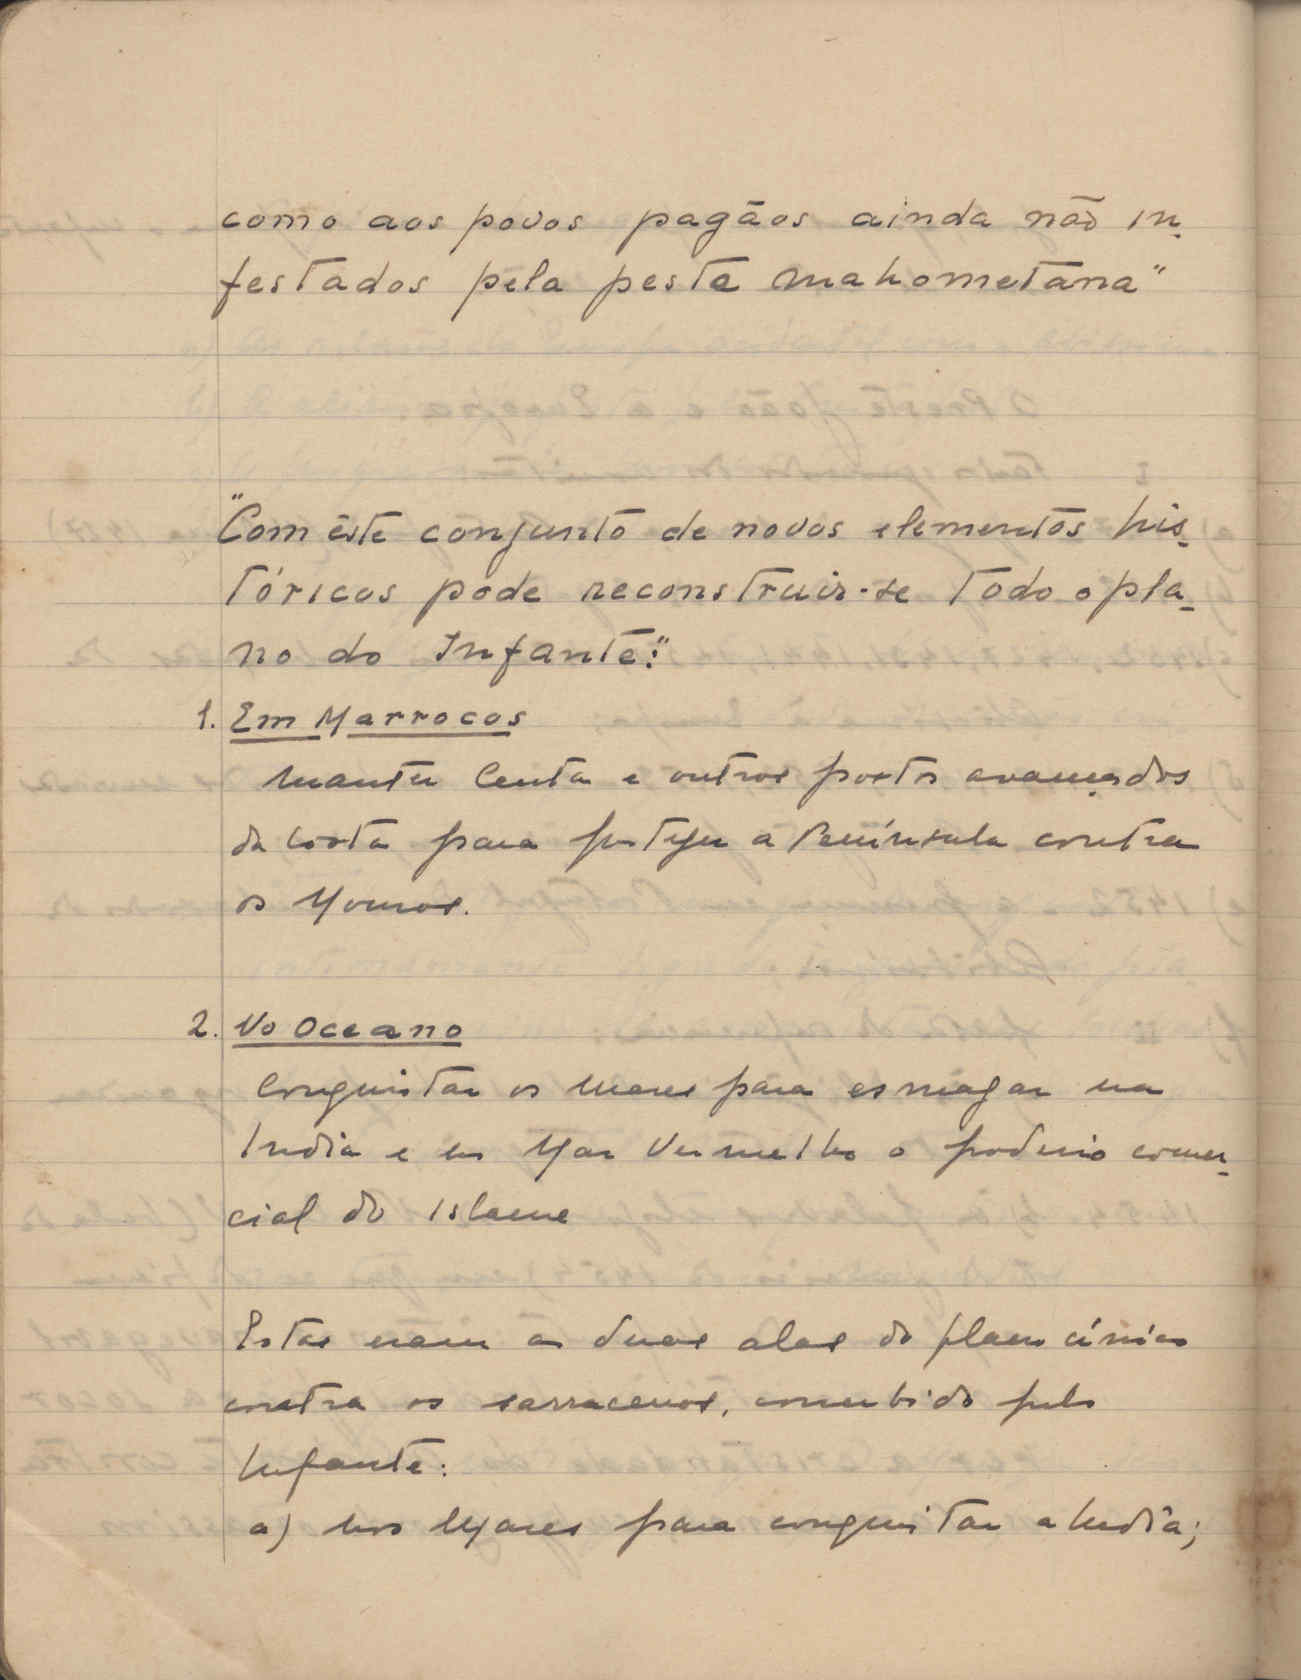 como aos povos pagãos ainda não in-
festados pela peste mahometana"
"Com êste conjunto de novos elementos his-
tóricos pode reconstruir-se todo o pla-
no do Infante:"
1. Em Marrocos
manter Ceuta e outros portos avançados
da costa para proteger a Península contra
os Mouros.
2. No Oceano
Conquistar os mares para esmagar na
India e no Mar Vermelho o poderio comer-
cial do Islame
Estas eram as duas alas do plano
contra os sarracenos, concebido pelo
Infante:
a) nos Mares para conquistar a India;